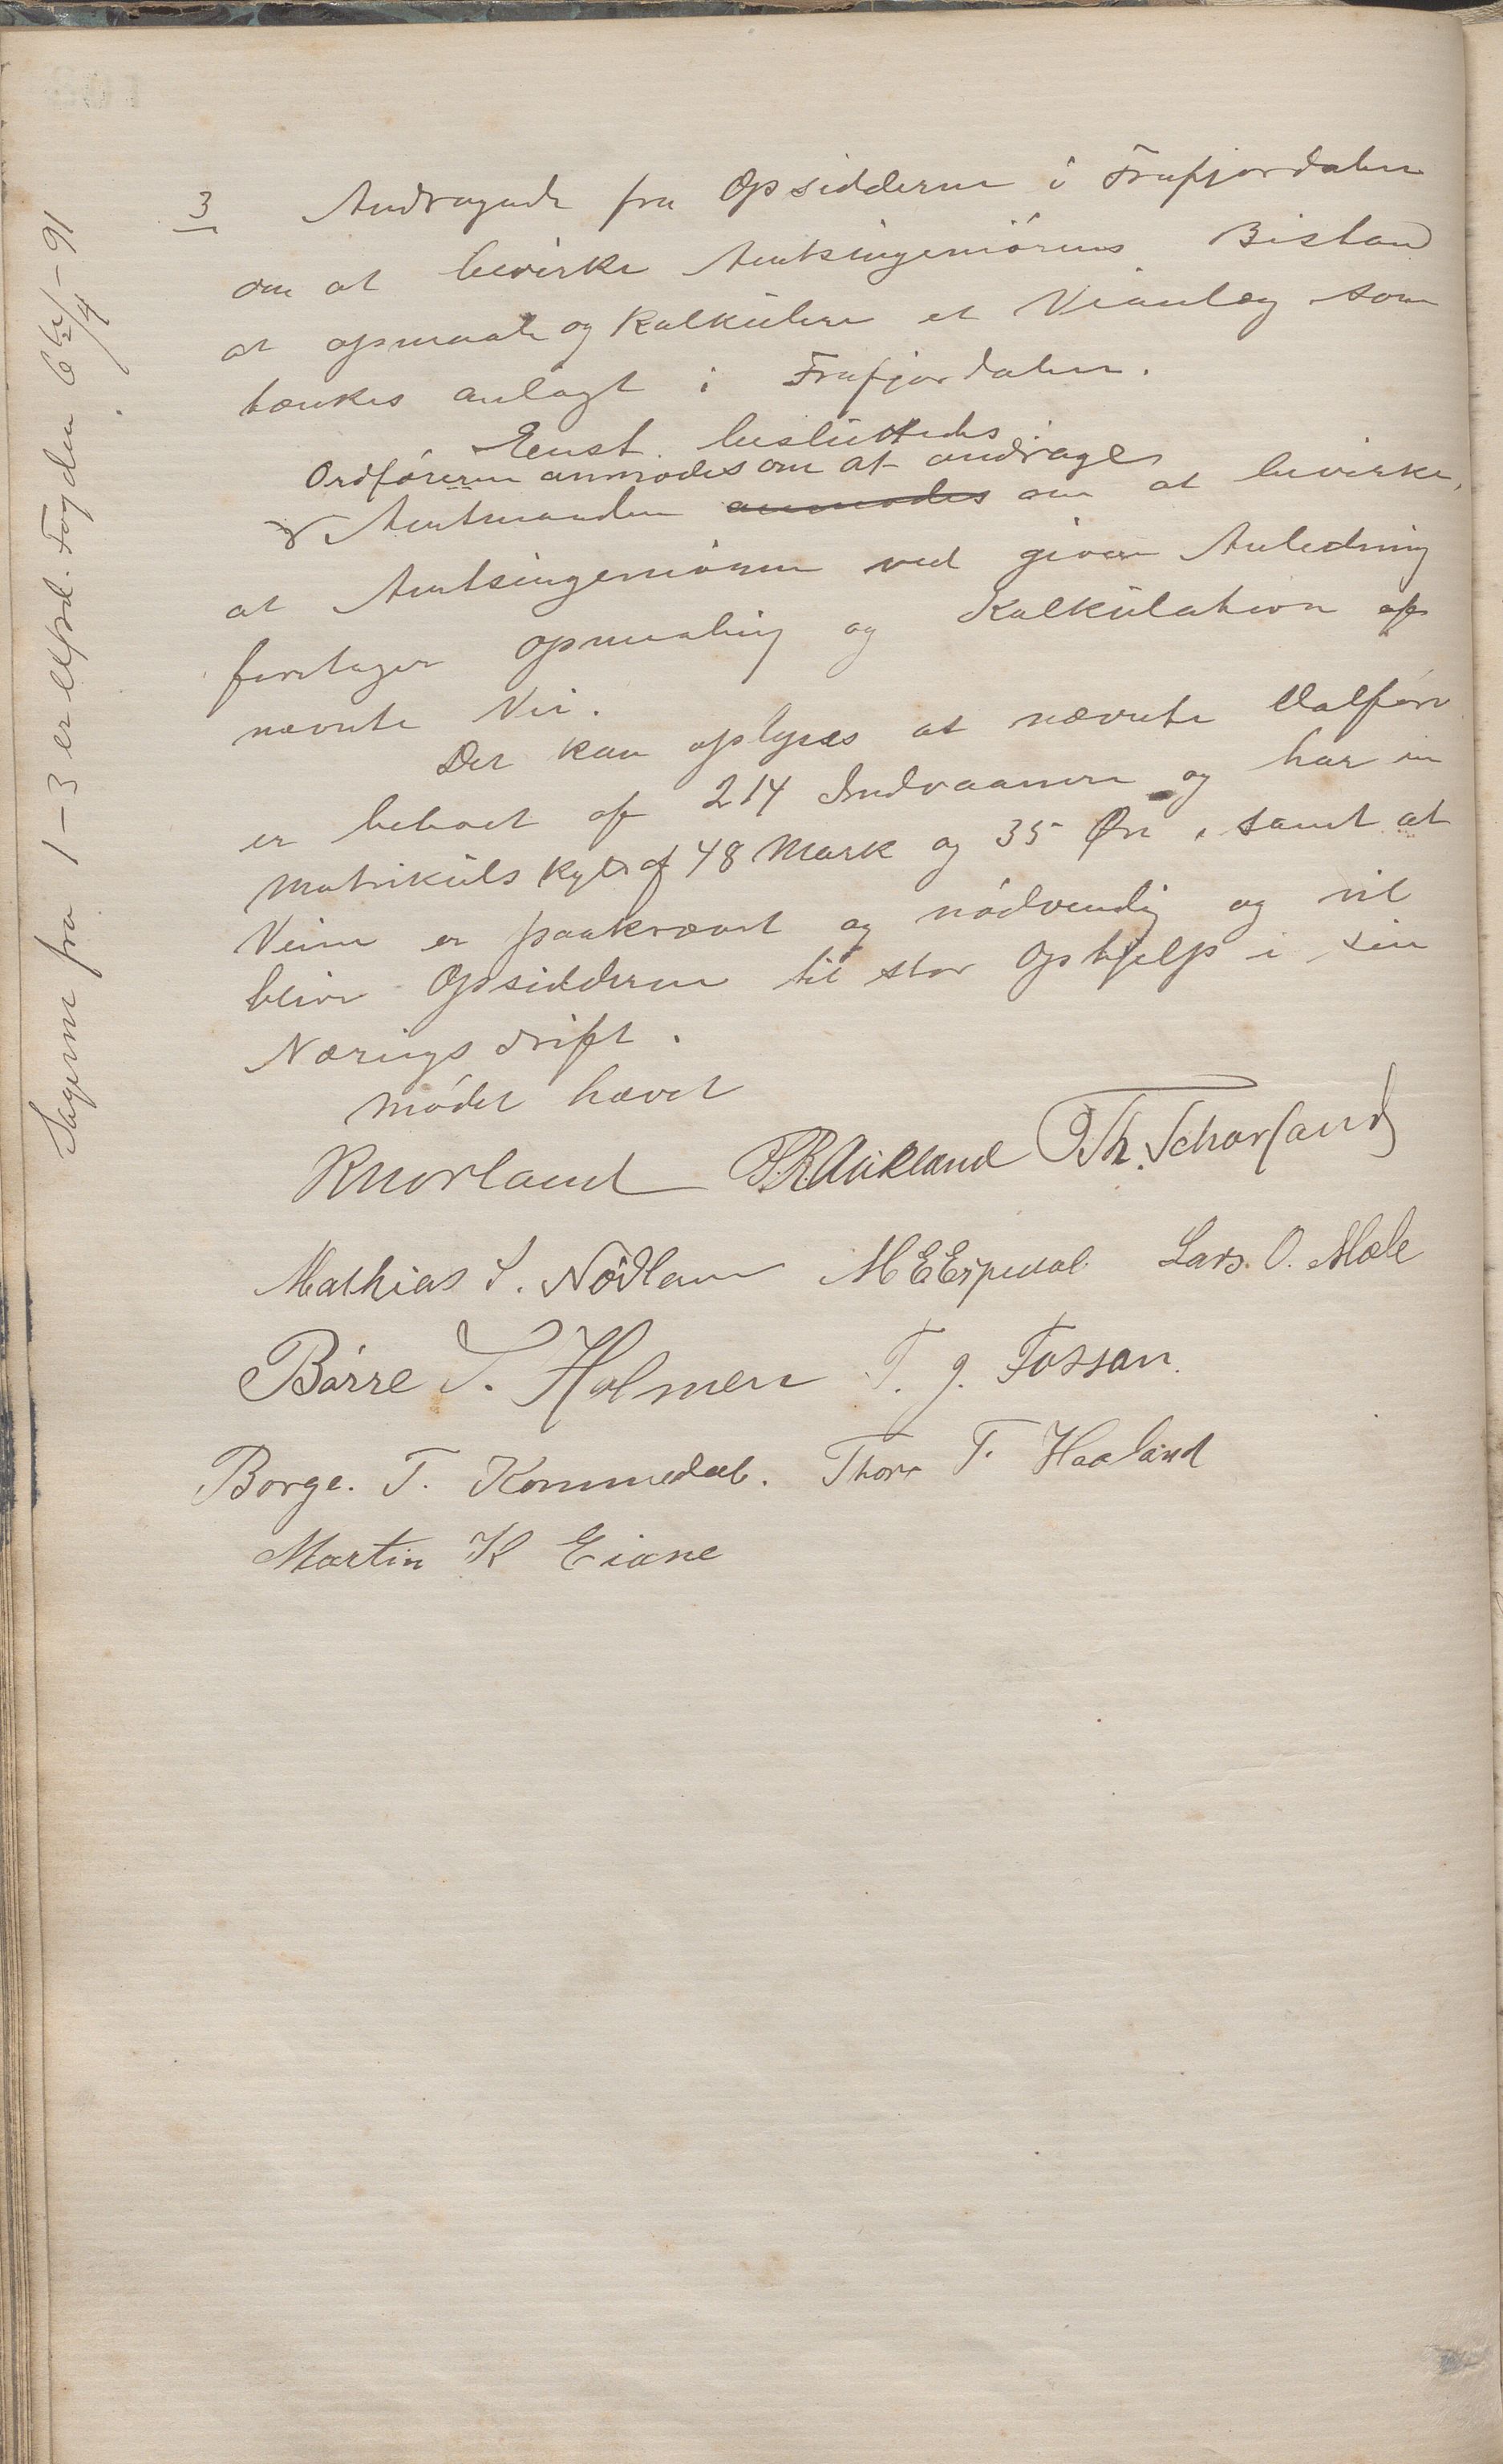 3 Andragende fra Opsidderne i Frafjordalen
om at bevirke Amtsingeniörens Bistand
at opmaale og Kalkulere et Veianlæg som
tænkes anlagt i Frafjordalen.
Eenst. besluttedes
Ordföreren anmodes om at andrage
Amtmanden anmodes om at bevirke,
at Amtsingeniören ved given Anledning
foretager opmaaling og Kalkulation af
nævnte Vei.
Det kan oplyses at nævnte Dalföre
er beboet af 214 Indvaanere og har en
Matrikulskyld af 48 Mark og 35 Øre, samt at
Veien er paakrævet og nödvendig og vil
blive Opsidderne til stor Ophjelp i sin
Næringsdrift.
Mödet hævet
RNorland P.R.Aukland Th. Schorland
Mathias S. Nödland M E Espedal Lars. O. Mæle
Börre S. Holmen T. J. Fossan.
Borge. T. Kommedal. Thore T. Haaland
Martin K Eiane
Sagerne fra 1-3 er Ufrd. Fogden 6te/4-91